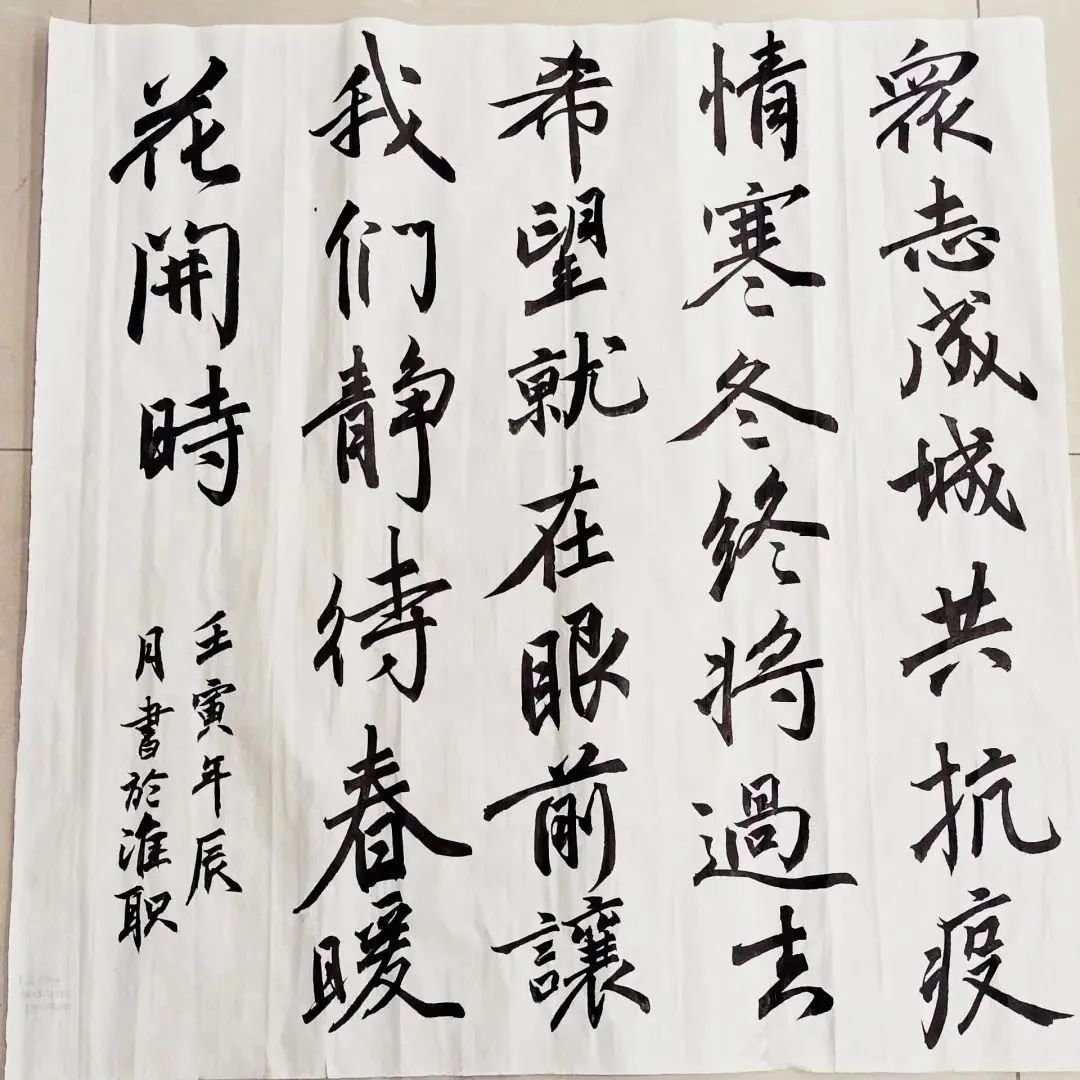 眾志成城共抗疫
情寒冬冬终將過去
希望就在眼前讓
我们静待春暖
花開時
壬寅年辰
月書於淮职